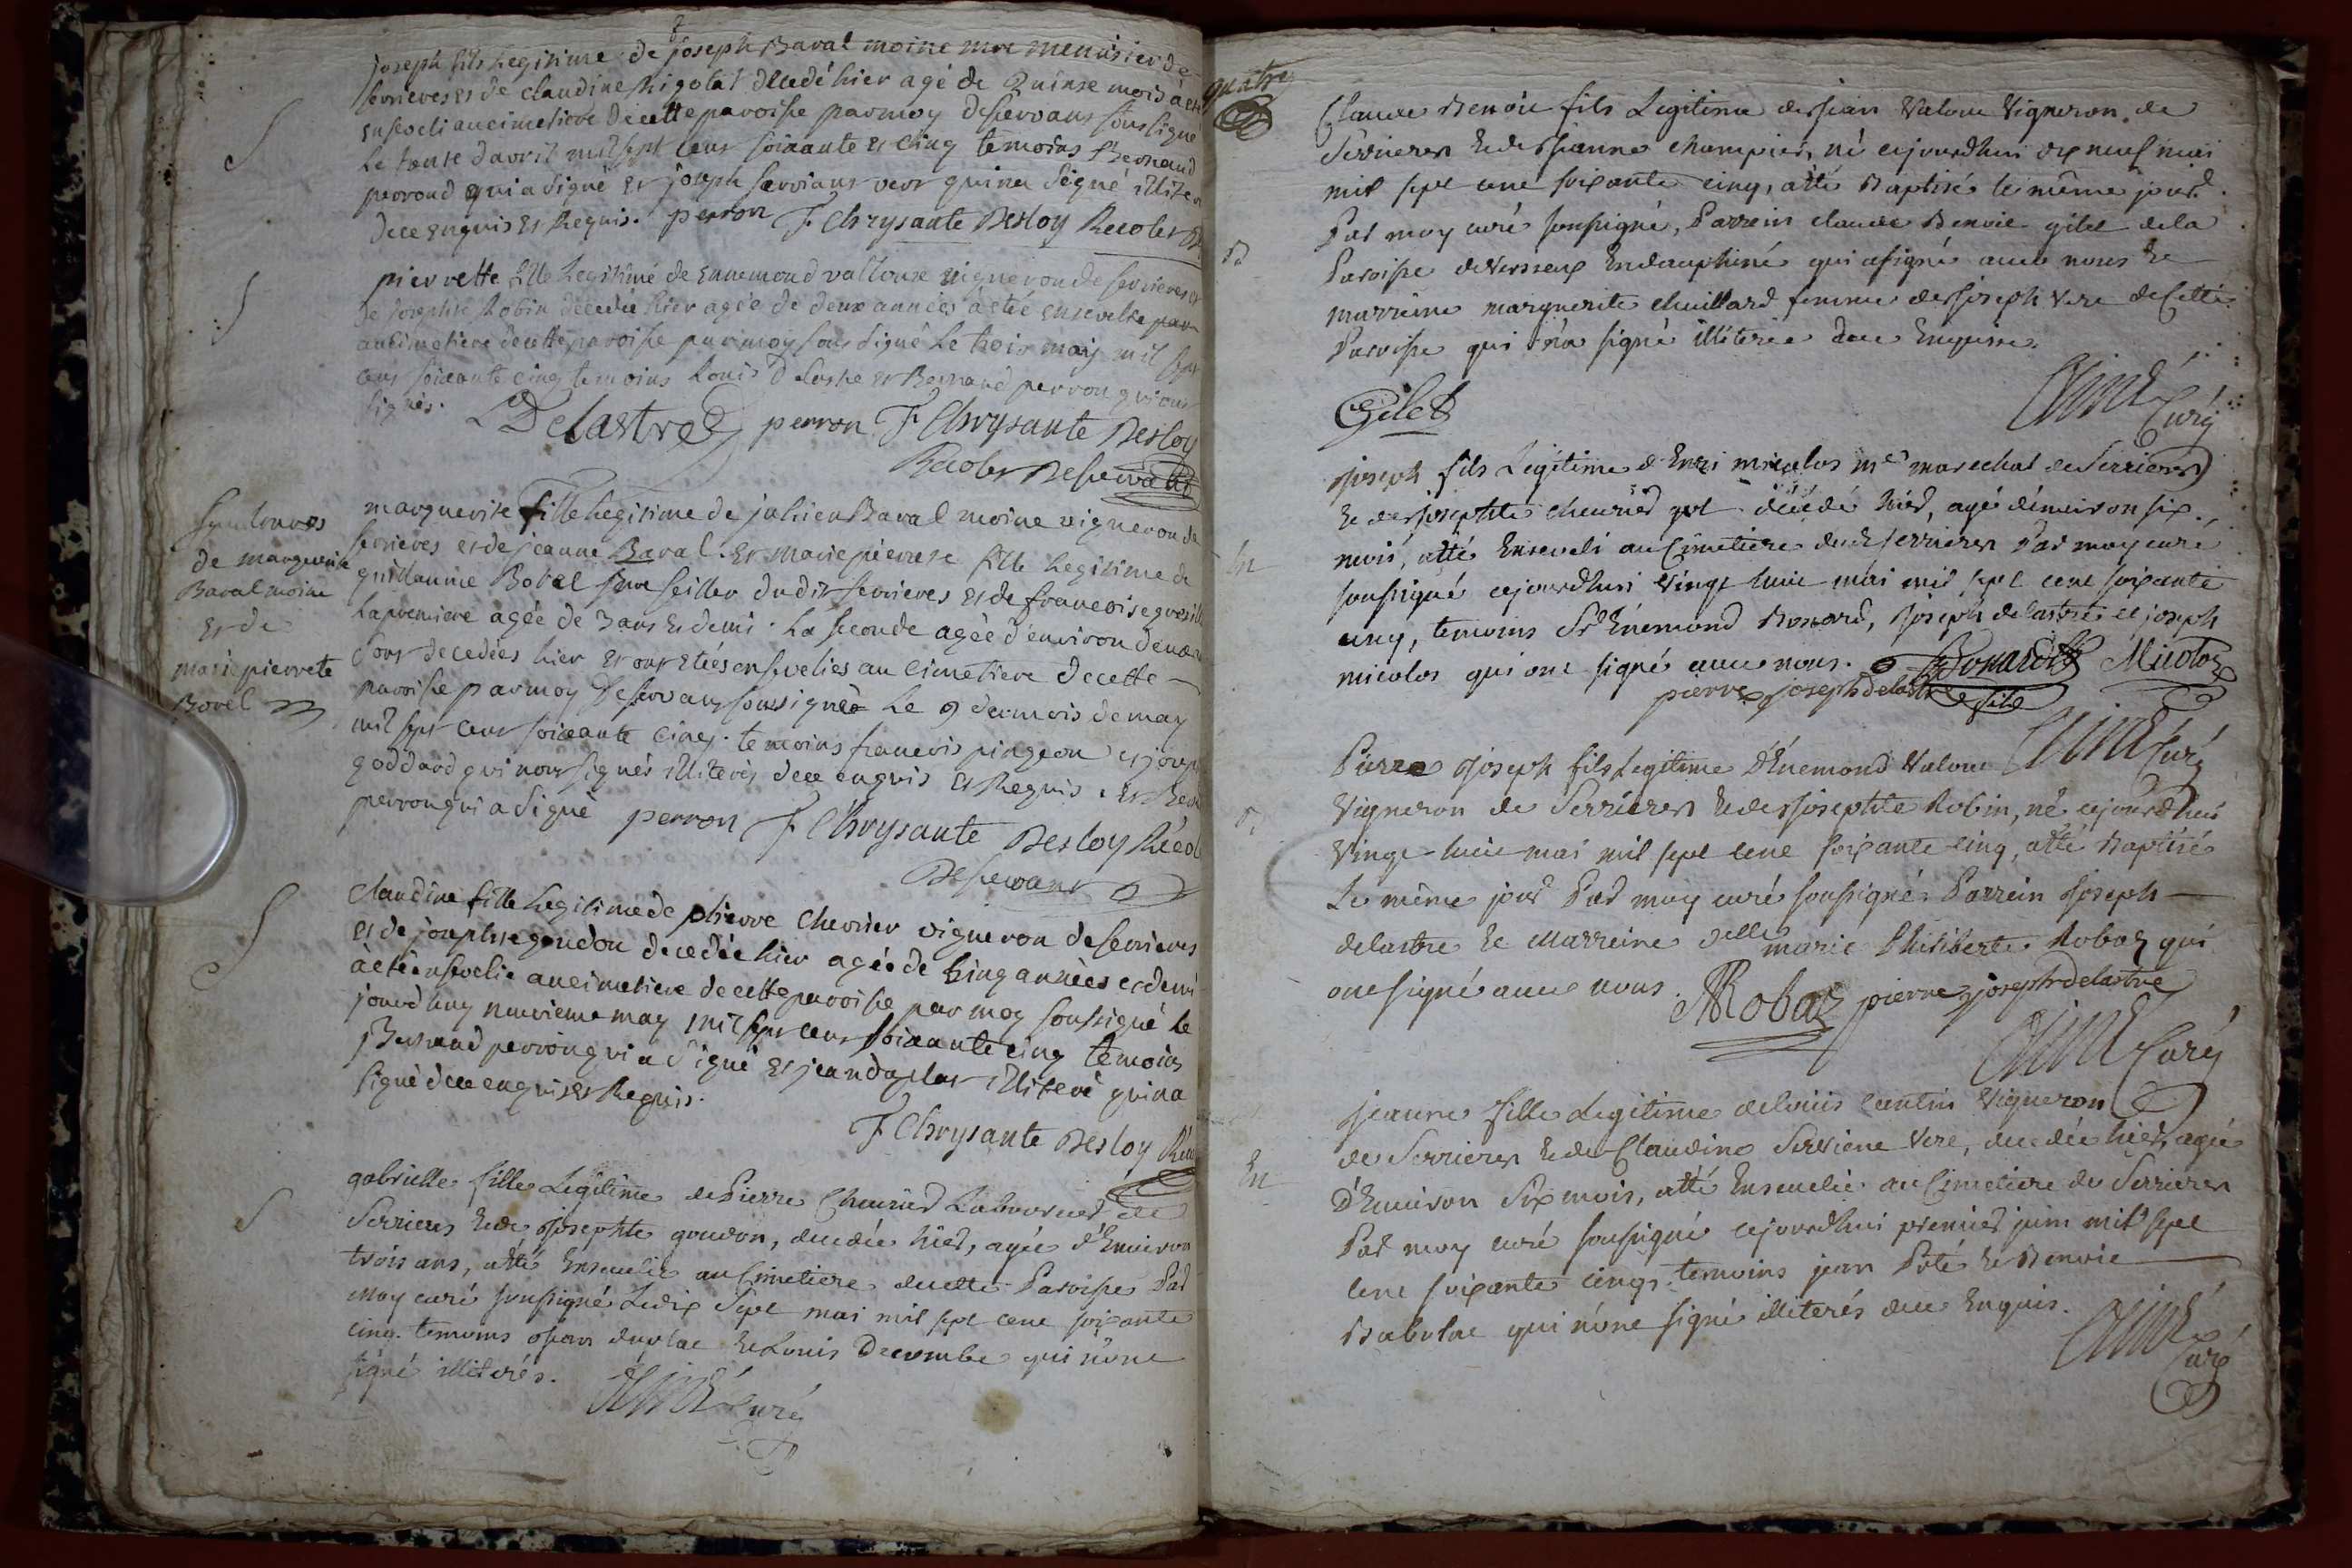 Joseph fils Legitime de joseph Baval moine me menusier de
serrieres et de claudine Rigolat decedé hier agé de Quinse mois à eté
enseveli au cimetiere de cette paroisse par moy desservant soussigné
Le trente d'avril mil sept cens soixante et cinq temoins Bernard
perroud qui a signé et joseph servians vert qui n'a signé illiteré
de ce enquis et Requis. perron F Chrysante Desloy Recolet
pierrette fille Legitime de Ennemond vallouse vigneron de serrieres et
de josephte Robin decedée hier agée de deux années à eté ensevelie
au cimetiere de cette paroisse par moy soussigné Le trois may mil sept
cens soixante cinq temoins Louis Delastre et Bernard perron qui ont
signés.
Delastre perron F Chrysante Desloy
Recolet Desservant
Symtoures
de marguerite
Baval moine
et de
marie pierrete
Bovel
marguerite fille Legitime de julien Baval moine vigneron de
serrieres et de jeanne Baval. et marie pierrete fille Legitime de
guillaume Bovel seiller dudit serrieres et de francoise
La premiere agée de 3 ans et demi. La seconde agée d'environ deux
sont decedées hier et ont etées ensevelies au cimetiere de cette
paroisse par moy desservant soussigné Le 9 du mois de may
mil sept cens soixante cinq. temoins francois pingeon et joseph
goddard qui n'ont signés illiterés de ce enquis et Requis. et Bernard
perron qui a signé perron F Chrysante Desloy Récol
Desservant
Claudine fille Legitime de pierre Chevrier vigneron de serrieres
et de josephte goudon decedée hier agée de Cinq années et demi
à eté ensevelie au cimetiere de cette paroisse par moy soussigné le
jourd'huy neuvieme may mil sept cens soixante cinq temoins
Bernard perron qui a signé et jean duclas illiteré qui n'a
signé de ce enquis et Requis.
F Chrysante Desloy Réco
gabrielle fille Legitime de Pierre Cheurier Laboureur de
Serrieres et de josephte goudon, decedée hier, agée d'Environ
trois ans, a été Ensevelie au Cimetiere de cette Paroisse Par
moy curé soussigné Le dix Sept mai mil sept cent soixante
cinq. temoins jean duclas et Louis Decombe qui n'ont
signé illiterés.
Curé
quatre
Claude Benoit fils Legitime de jean Valoue Vigneron de
Serrieres et de jeanne champier, né cejourd'hui dix neuf mai
mil sept cent soixante cinq, a été Baptisé le même jour
Par moy curé soussigné, Parrein claude Benoit gilet de la
B
Paroisse de Versseux En dauphiné qui a signé avec nous et
marreine marguerite chuillard femme de joseph Vere de Cette
Paroisse qui n'a signé illiterée de ce Enquise.
Gilet
Curé
joseph fils Legitime d'Enri micolas me marechal de Serrieres
et de josephte cheurier got decedé hier, agé d'environ six
En
mois, a été Enseveli au Cimetiere de Serrieres Par moy curé
soussigné cejourd'hui Vingt huit mai mil sept cent soixante
cinq, temoins Sr Enemond Bonard, joseph delastre et joseph
micolas qui ont signé avec nous. Bonard Micolas
pierre joseph delastre fils
Curé
Pierre joseph fils Legitime D'Enemond Valoue
Vigneron de Serrieres et de josephte Robin, né cejourd'hui
B
Vingt-huit mai mil sept cent soixante cinq, a été Baptisé
Le même jour Par moy curé soussigné. Parrein joseph
delastre et Marreine Delle marie Philiberte Robaz qui
ont signé avec nous. Robaz pierre joseph delastre
Curé
jeanne fille Legitime de Louis Vigneron
de Serrieres et de Claudine Serviene Vere, decedée hier, agée
En
D'Environ Six mois, a été Ensevelie au Cimetiere de Serrieres
Par moy curé soussigné cejourd'hui premier juin mil sept
cent soixante cinq. temoins jean Poté et Benoit
Babolat qui n'ont signé illiterés de ce Enquis.
Curé